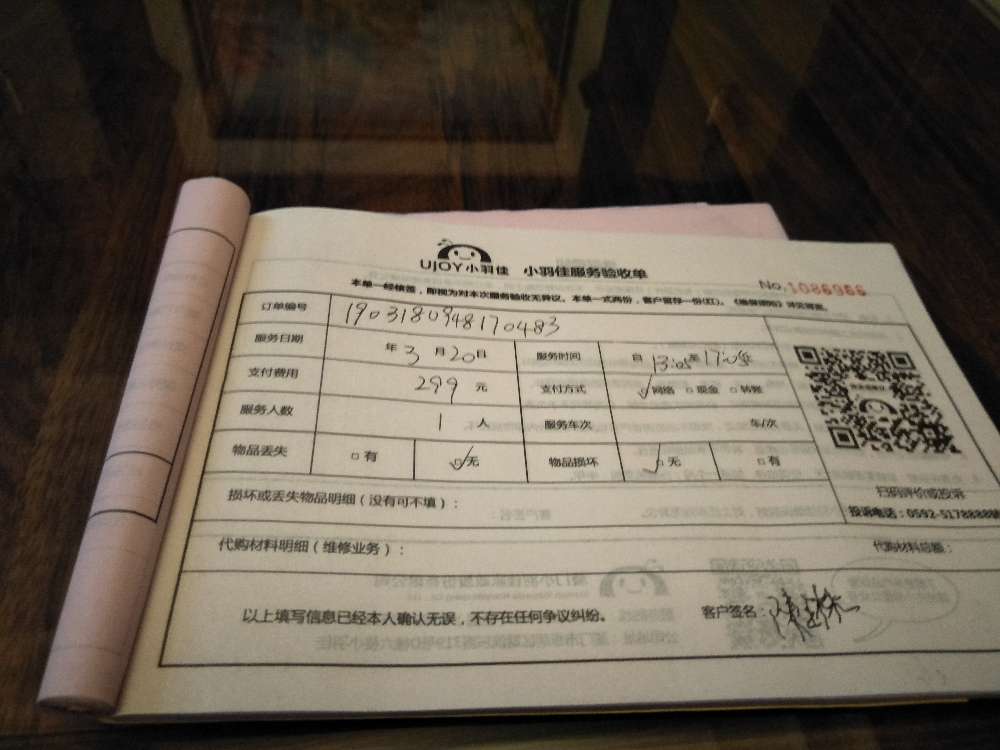 UJOY小羽佳 小羽佳服务验收单
No.1086966
本单一经核签，即视为对本次服务验收无异议。本单一式两份，客户留存一份(红)。
订单编号 1903180948170483
服务日期 年 3 月 20 日 服务时间 自 13:05 至 17:05
支付费用 299 元 支付方式 ☑网络 □现金 □转账
服务人数 1 人 服务车次 车/次
物品丢失 □有 ☑无 物品损坏 ☑无 □有
扫码评价或投诉
投诉电话：0592-5178888
损坏或丢失物品明细（没有可不填）：
代购材料明细（维修业务）： 代购材料总额：
以上填写信息已经本人确认无误，不存在任何争议纠纷。 客户签名：